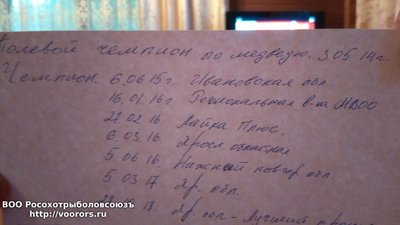 Полевой чемпион по медведю. 3.05 14г.
Чемпион 6.06 15г. Ивановская обл.
16.01.16г. Региональная в-ка МООО
27.02 16 Лайка Плюс.
6 03.16. Яросл. областная
5.06 16. Нижний Новгор обл.
5.03 17 Яр- обл.
18. Яр. обл - Лучший
ВОО Росохотрыболовсоюзъ
http://voorors.ru